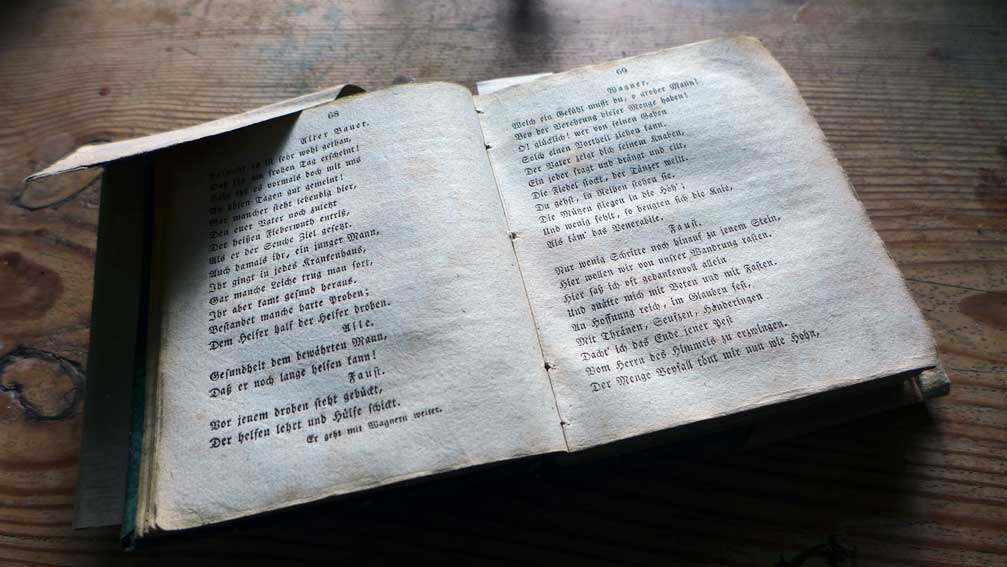 68
Alter Bauer.
Fürwahr! es ist sehr wohl gethan,
Daß ihr am frohen Tag erscheint;
Habt ihr es vormals doch mit uns
An bösen Tagen gut gemeint!
Gar mancher steht lebendig hier,
Den euer Vater noch zuletzt
Der heißen Fieberwuth entriß,
Als er der Seuche Ziel gesetzt.
Auch damals ihr, ein junger Mann,
Ihr gingt in jedes Krankenhaus,
Gar manche Leiche trug man fort,
Ihr aber kamt gesund heraus.
Bestandet manche harte Proben;
Dem Helfer half der Helfer droben.
Alle.
Gesundheit dem bewährten Mann,
Daß er noch lange helfen kann!
Faust.
Vor jenem droben steht gebückt,
Der helfen lehrt und Hülfe schickt.
Er geht mit Wagnern weiter.
69
Wagner.
Welch ein Gefühl mußt du, o großer Mann!
Bey der Verehrung dieser Menge haben!
O! glücklich! wer von seinen Gaben
Solch einen Vortheil ziehen kann.
Der Vater zeigt dich seinem Knaben,
Ein jeder fragt und drängt und eilt,
Die Fiedel stockt, der Tänzer weilt.
Du gehst, in Reihen stehen sie,
Die Mützen fliegen in die Höh';
Und wenig fehlt, so beugten sich die Knie,
Als käm' das Venerabile.
Faust.
Nur wenig Schritte noch hinauf zu jenem Stein,
Hier wollen wir von unsrer Wandrung rasten.
Hier saß ich oft gedankenvoll allein
Und quälte mich mit Beten und mit Fasten.
An Hoffnung reich, im Glauben fest,
Mit Thränen, Seufzen, Händeringen
Dacht' ich das Ende jener Pest
Vom Herrn des Himmels zu erzwingen.
Der Menge Beyfall tönt mir nun wie Hohn,